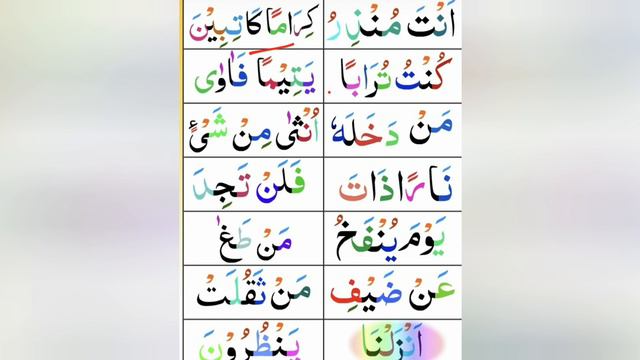 اَنْتَ مُنْذِرُ كِرَامًا كَاتِبِيْنَ
كُنْتُ تُرَابًا يَتِيْمًا فَاٰوٰى
مَنْ دَخَلَهٗ اُنْثٰى مِنْ شَیْءٍ
نَارًا ذَاتَ فَلَنْ تَجِدَ
يَوْمَ يُنْفَخُ مَنْ طَغٰ
عَنْ ضَيْفِ مَنْ ثَقُلَتْ
اَنْزَلْنَا يَنْظُرُوْنَ